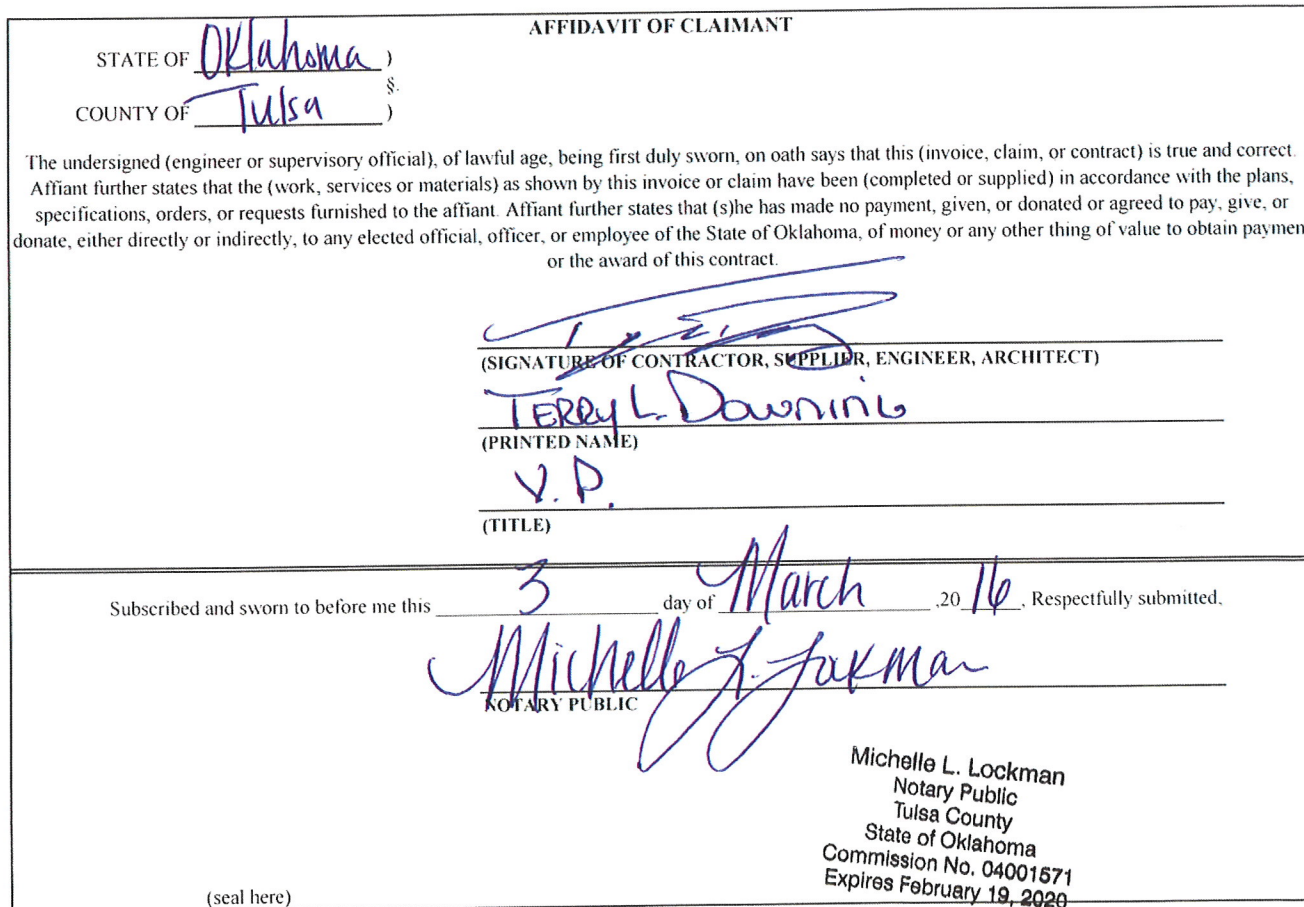 AFFIDAVIT OF CLAIMANT
STATE OF Oklahoma )
§.
COUNTY OF Tulsa )
The undersigned (engineer or supervisory official), of lawful age, being first duly sworn, on oath says that this (invoice, claim, or contract) is true and correct.
Affiant further states that the (work, services or materials) as shown by this invoice or claim have been (completed or supplied) in accordance with the plans,
specifications, orders, or requests furnished to the affiant. Affiant further states that (s)he has made no payment, given, or donated or agreed to pay, give, or
donate, either directly or indirectly, to any elected official, officer, or employee of the State of Oklahoma, of money or any other thing of value to obtain paymen
or the award of this contract.
(SIGNATURE OF CONTRACTOR, SUPPLIER, ENGINEER, ARCHITECT)
TERRY L. DOWNING
(PRINTED NAME)
V.P.
(TITLE)
Subscribed and sworn to before me this 3 day of March ,20 16, Respectfully submitted,
Michelle L. Lockman
NOTARY PUBLIC
Michelle L. Lockman
Notary Public
Tulsa County
State of Oklahoma
Commission No. 04001571
Expires February 19, 2020
(seal here)